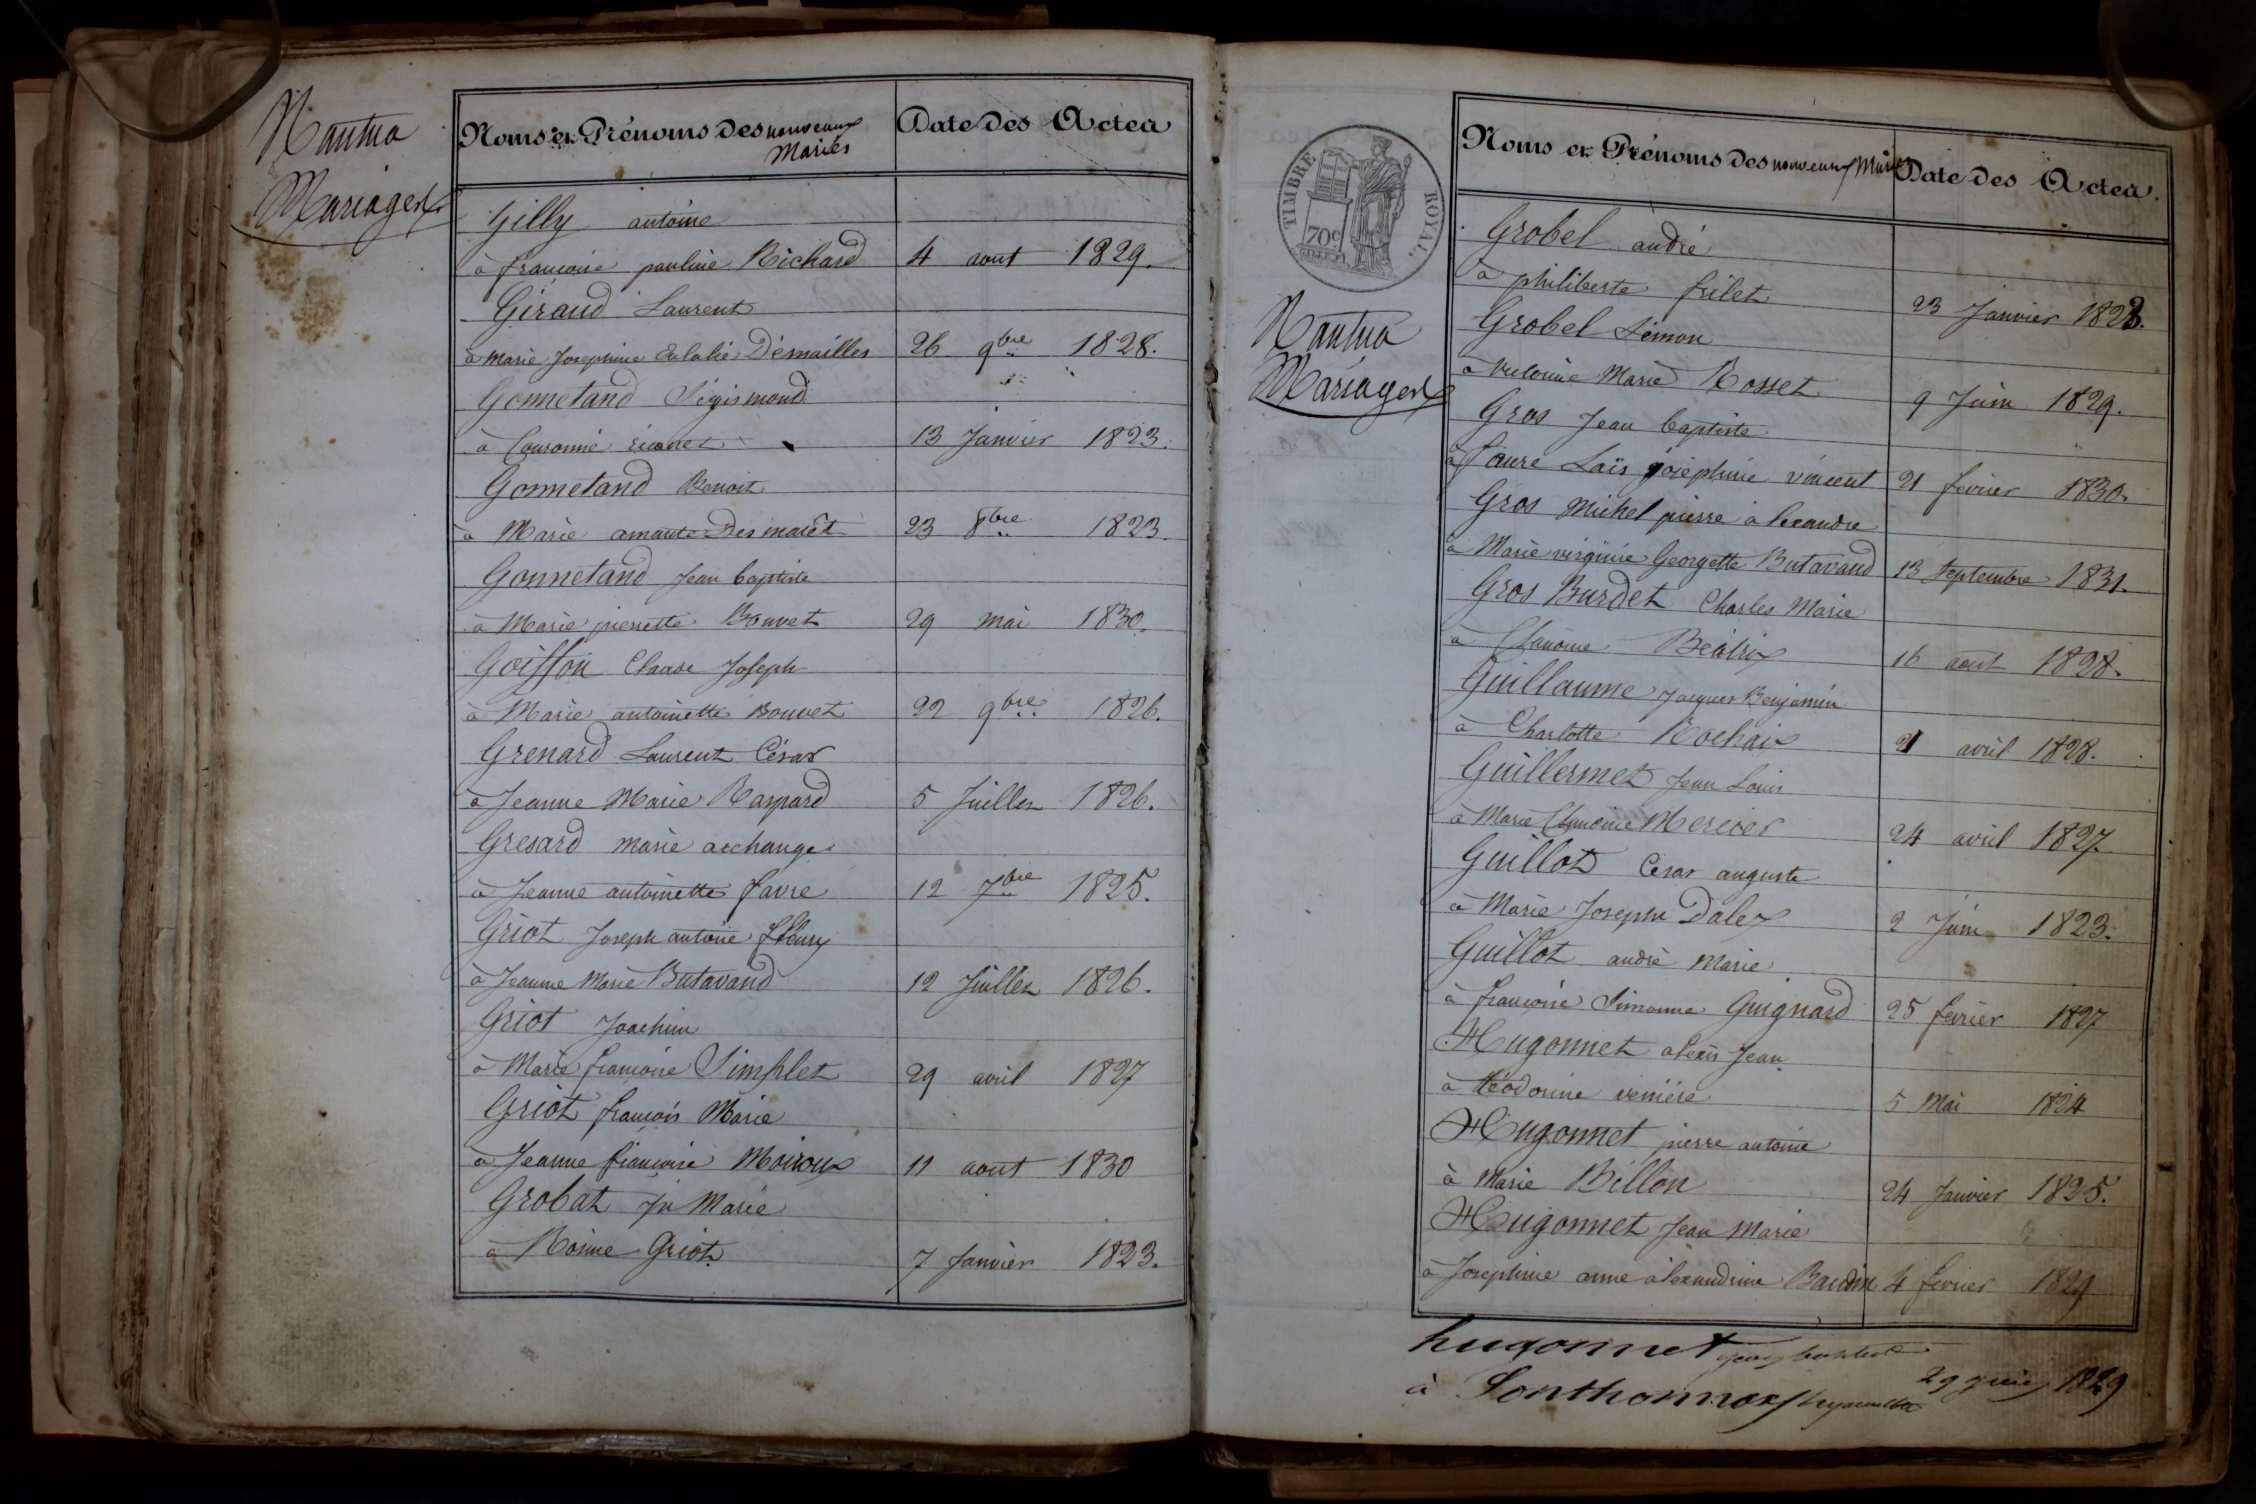 Nantua
Mariages
Noms et Prénoms des nouveaux
Mariés
Date des Actes
Gilly antoine
à françoise pauline Richard 4 aout 1829.
Giraud Laurent
à Marie Josephine Eulalie Désmailles 26 9bre 1828.
Gonnetand Sigismond
à Couronné 13 Janvier 1823.
Gonnetand Benoit
à Marie amante Des marêt 23 8bre 1823.
Gonnetand Jean baptiste
à Marie pierrette Bouvet 29 mai 1830.
Goiffon Claude Joseph
à Marie antoinette Bouvet 22 9bre 1826.
Grenard Laurent César
à Jeanne Marie Raspard 5 Juillet 1826.
Gresard marie archange
à Jeanne antoinette favre 12 7bre 1825.
Griot Joseph antoine fleury
à Jeanne Marie Butavand 12 Juillet 1826.
Griot Joachim
à Marie françoise Simplet 29 avril 1827
Griot françois Marie
à Jeanne françoise Moiroux 11 aout 1830
Grobat Jh Marie
à Rosine Griot. 7 Janvier 1823.
TIMBRE ROYAL.
70c
Nantua
Mariages
Noms et Prénoms des nouveaux Mariés
Date des Actes.
Grobel andré
à philiberte frilet 23 Janvier 1828.
Grobel Simon
à Victoine Marie Rosset 9 Juin 1829.
Gros Jean baptiste
à Laure Laïs joséphine vincent 21 fevrier 1830.
Gros Michel pierre alexandre
à Marie virginie Georgette Butavand 13 Septembre 1831.
Gros Burdet Charles Marie
à Claudine Béatrix 16 aout 1828.
Guillaume Jacques Benjamin
à Charlotte Rochaix 21 avril 1828.
Guillermet Jean Louis
à Marie Claudine Mercier 24 avril 1827.
Guillot Cesar auguste
à Marie Josephe Dalex 2 Juin 1823.
Guillot andré Marie
à françoise Simonne Guignard 25 fevrier 1827
Hugonnet alexis Jean
à téodorine 5 Mai 1824
Hugonnet pierre antoine
à Marie Billon 24 Janvier 1825.
Hugonnet Jean Marie
à Josephine anne alexandrine Baudin 4 fevrier 1829
hugonnet jean baptiste
à Sonthonnax 29 juin 1829